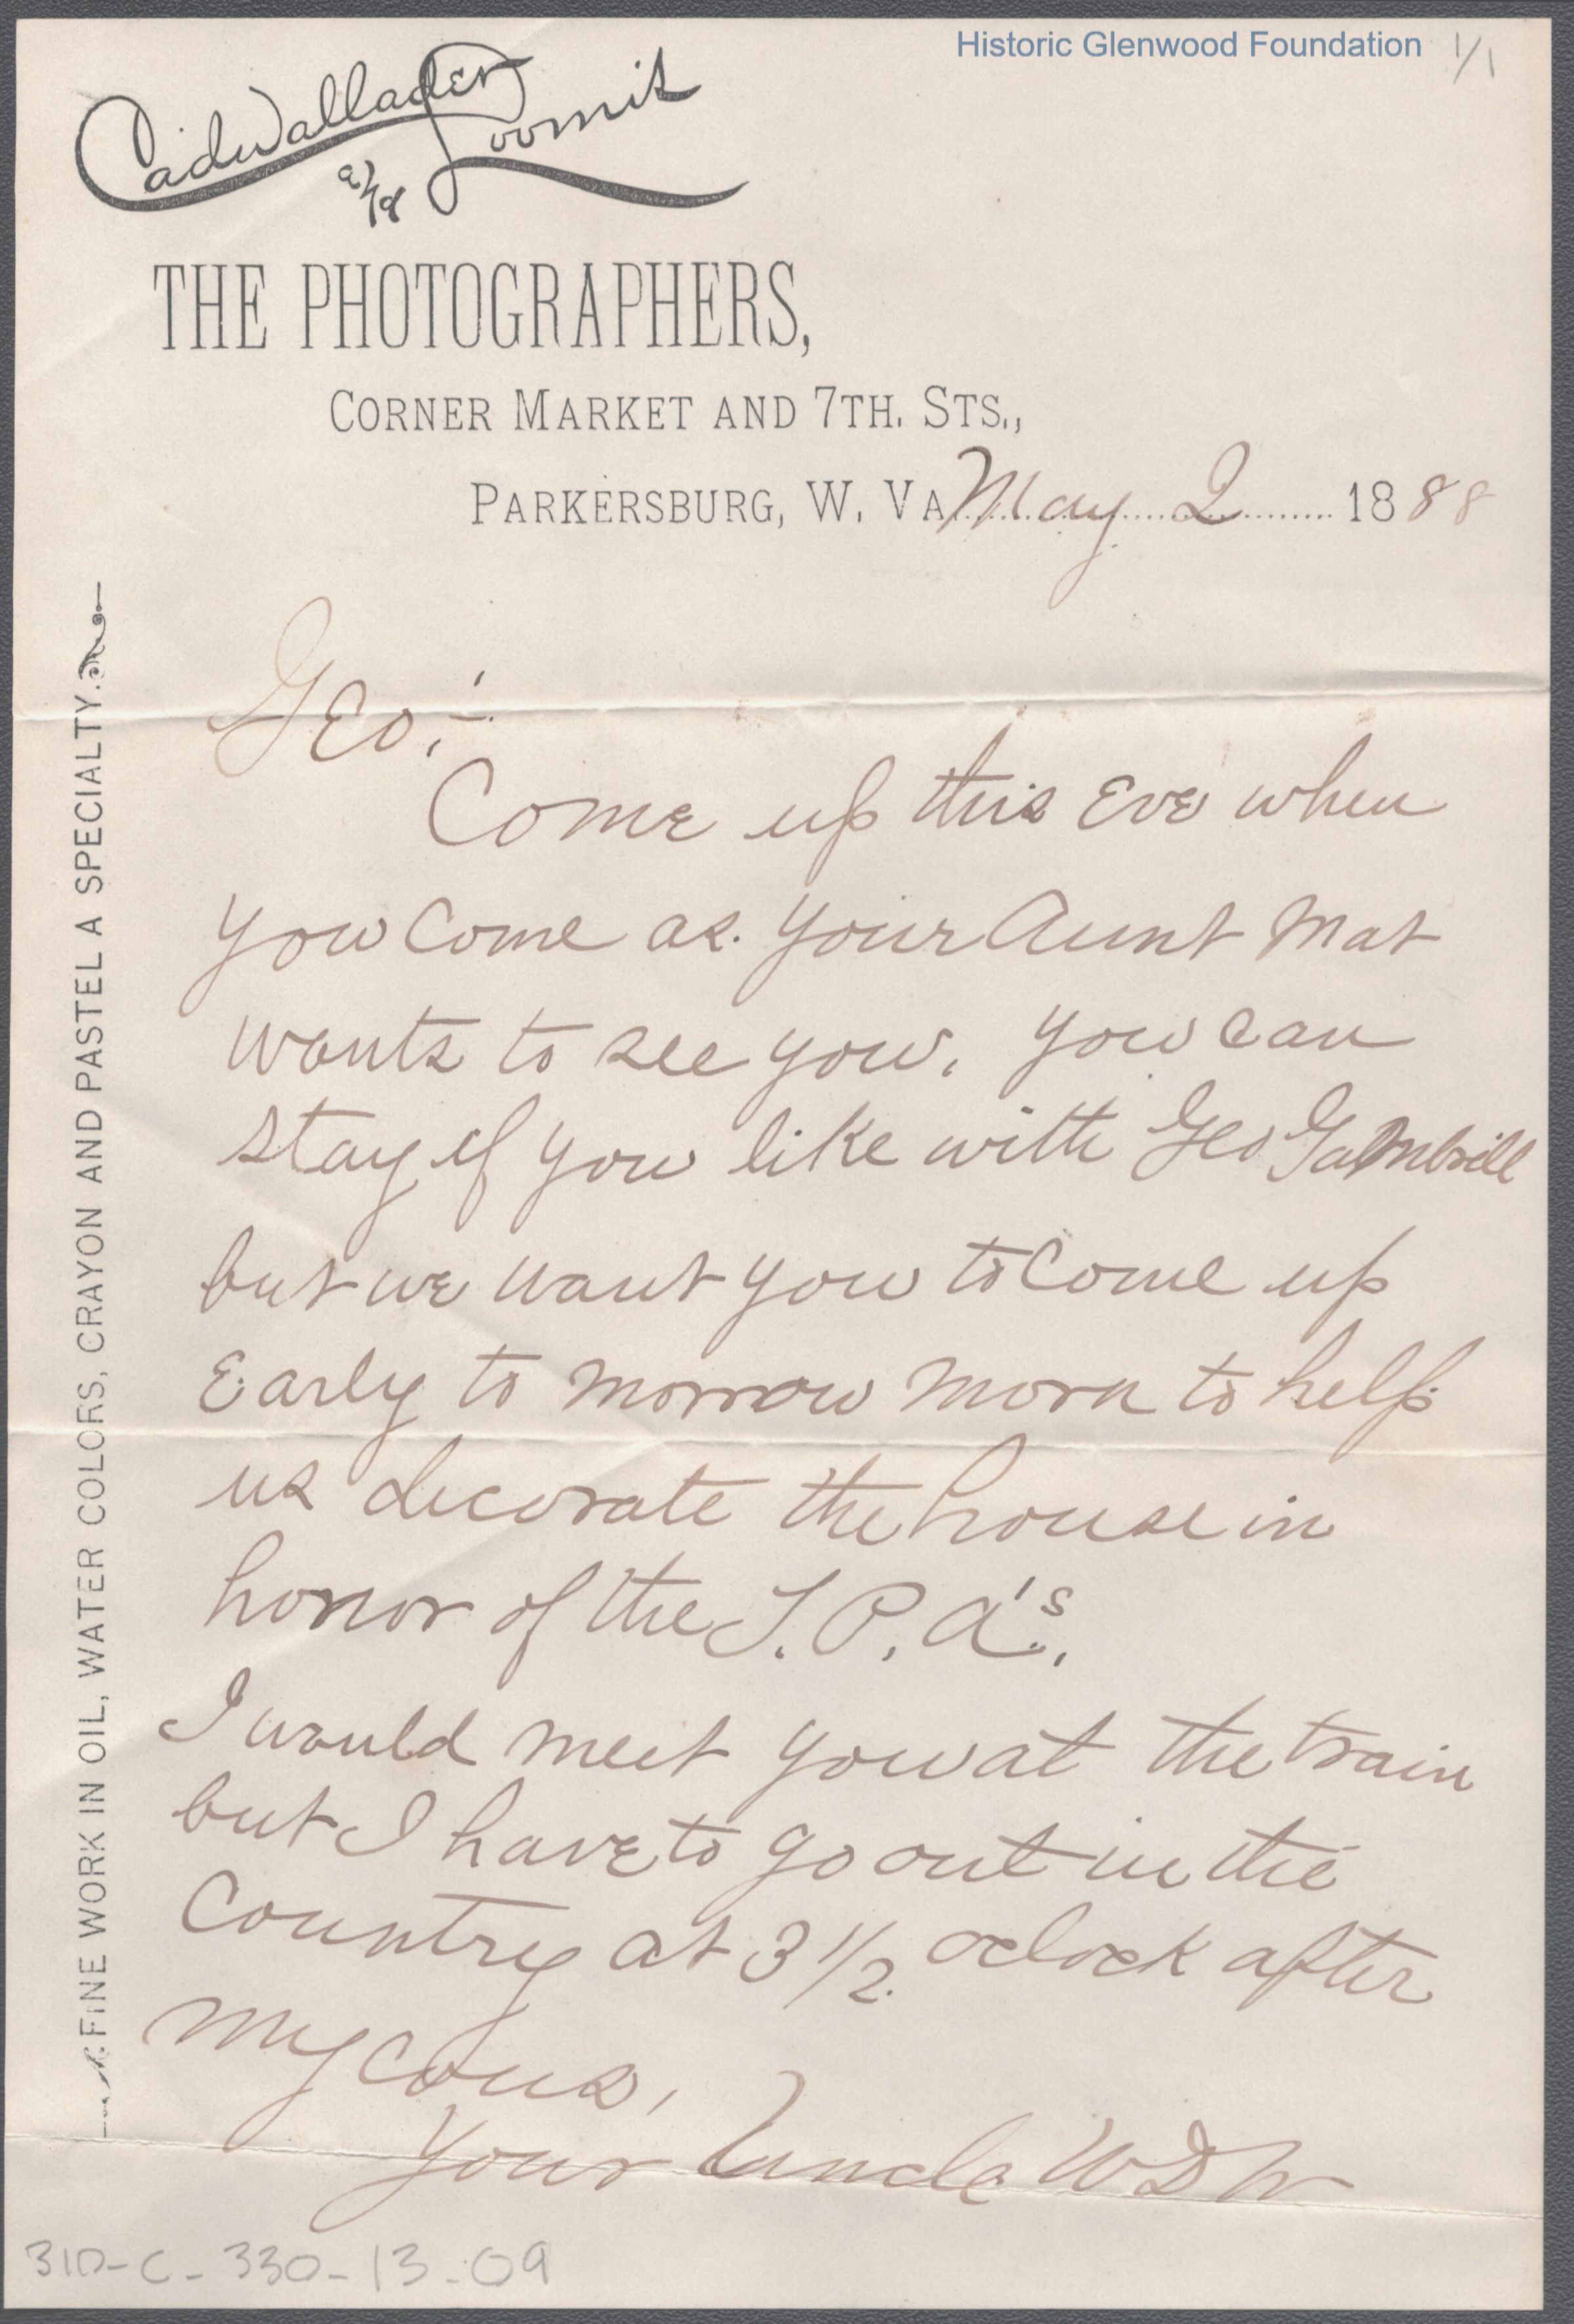 Historic Glenwood Foundation 1/1
Cadwallader
& Loomis
THE PHOTOGRAPHERS,
CORNER MARKET AND 7TH. STS.,
PARKERSBURG, W. VA May 2 1888
FINE WORK IN OIL, WATER COLORS, CRAYON AND PASTEL A SPECIALTY.
Geo;-
Come up this Eve when
you Come as. your Aunt Mat
wants to see you, you can
stay if you like with Geo Gambrill
but we want you to Come up
Early to morrow morn to help
us decorate the house in
honor of the T. P. A's.
I would meet you at the train
but I have to go out in the
Country at 3 1/2 oclock after
my cous,
Your Uncle WDW
31D-C-330-13-09